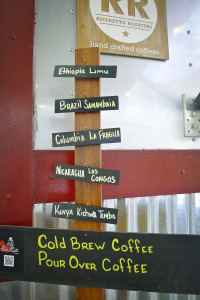 RR
RISTRETTO ROASTERS
hand crafted coffees
Ethiopia Limu
Brazil Samambaia
Columbia La Fragua
Nicaragua Los
Congos
Kenya Kichwa Tembo
Cold Brew Coffee
Pour Over Coffee